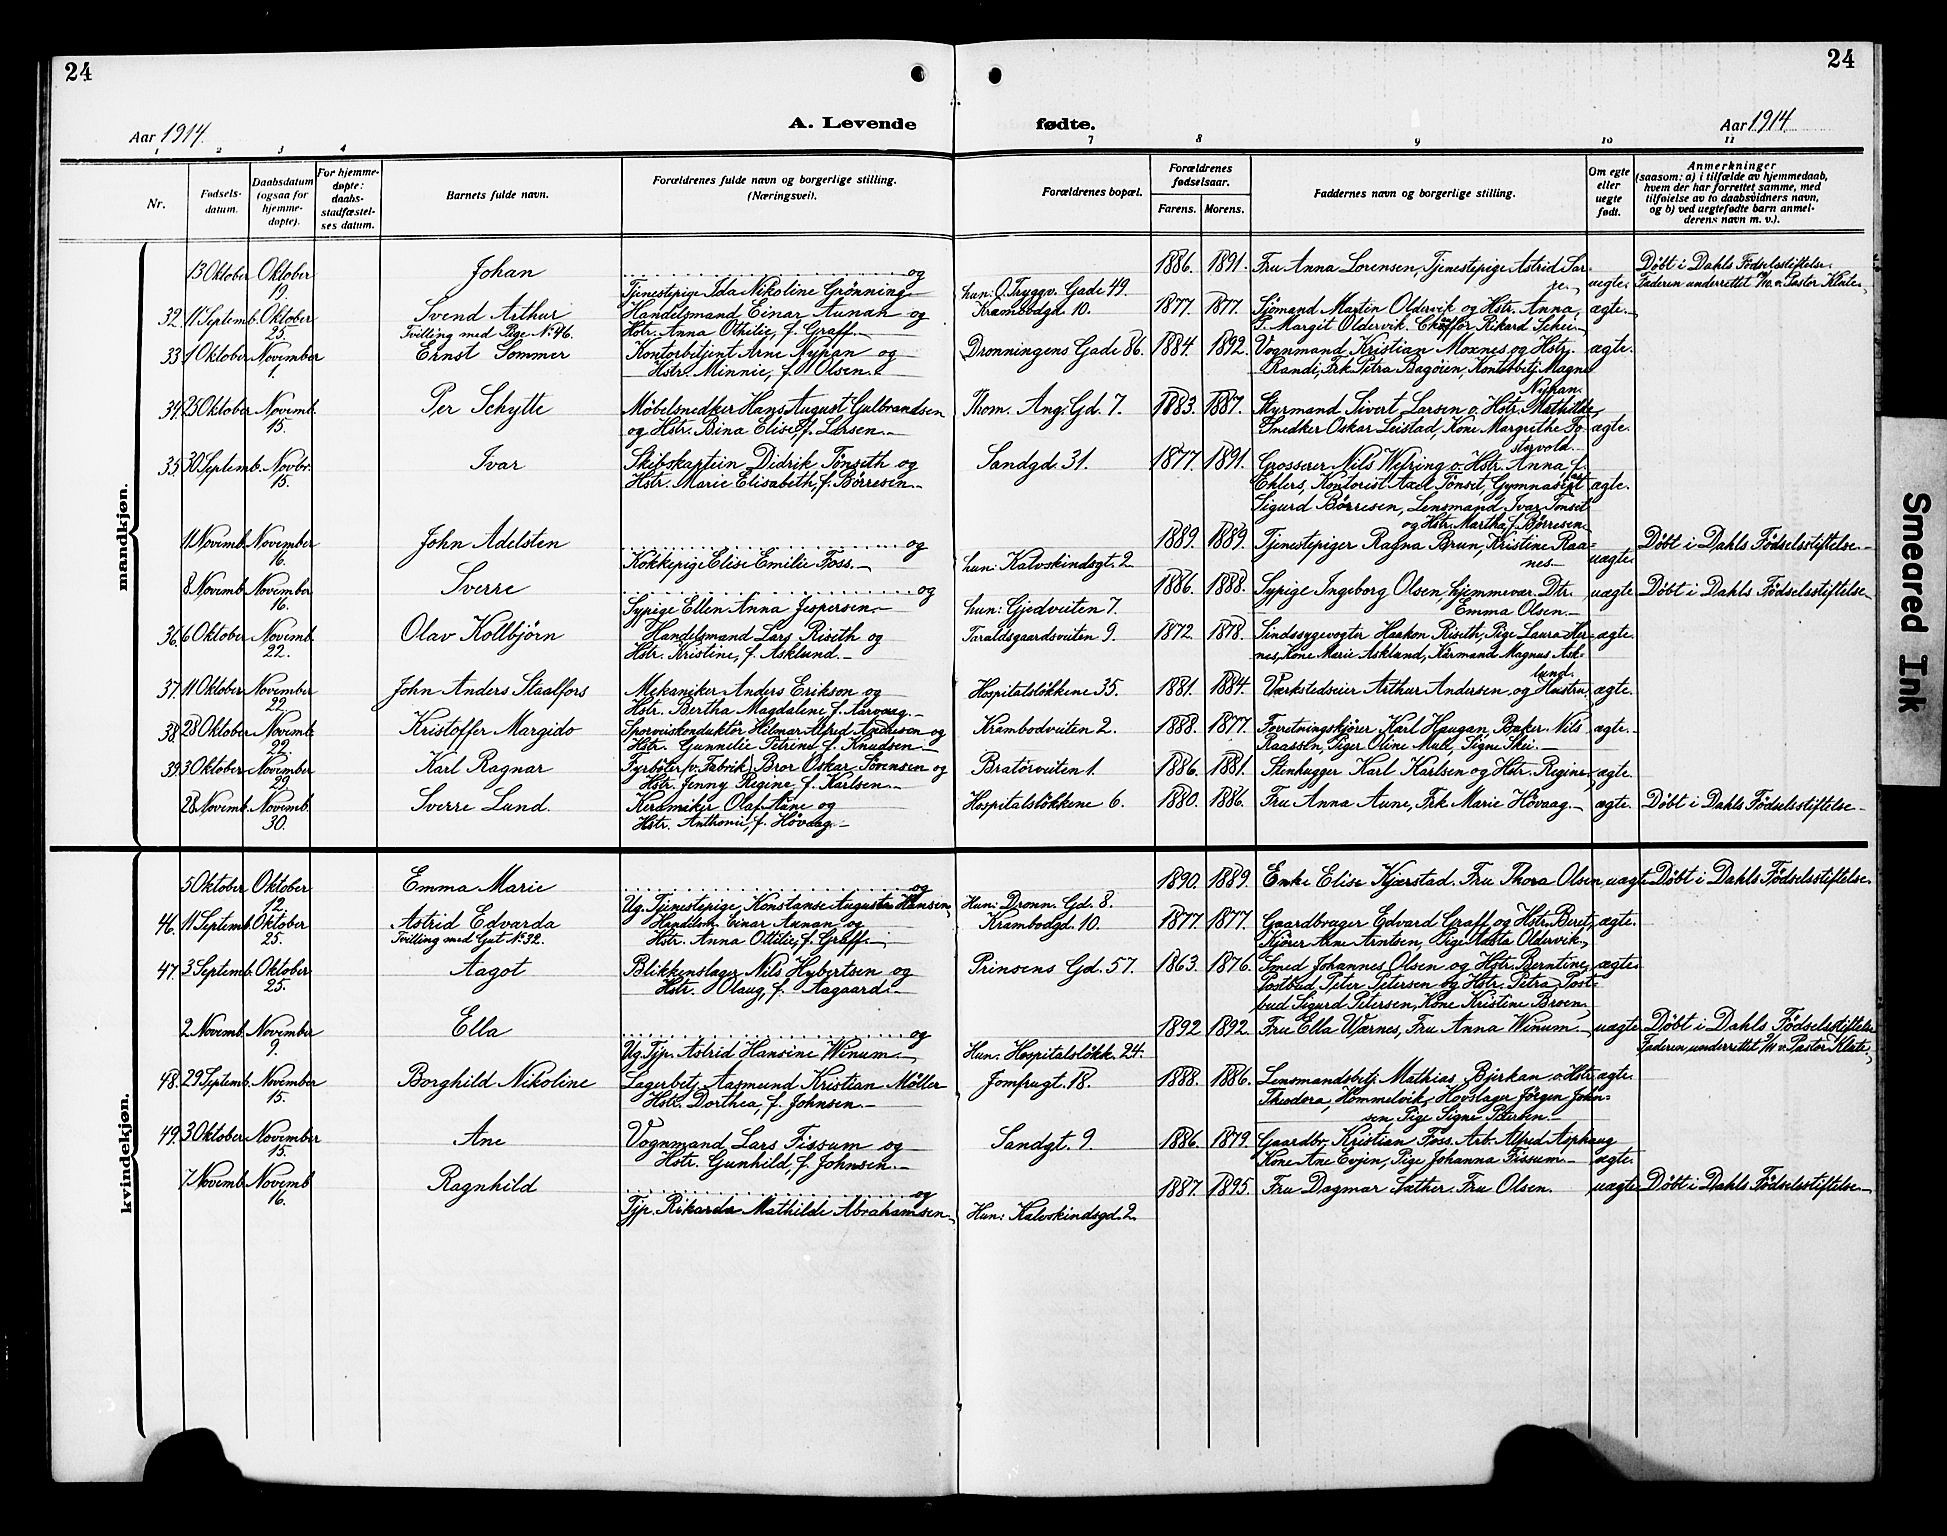 24
24
A. Levende
fødte.
Aar 1914.
Aar 1914
1 2 3 4
7 8 9 10 11
Nr.
Fødsels-
datum.
Daabsdatum
(ogsaa for
hjemme-
døpte).
For hjemme-
døpte:
daabs-
stadfæstel-
ses datum.
Barnets fulde navn.
Forældrenes fulde navn og borgerlige stilling.
(Næringsvei).
Forældrenes bopæl.
Forældrenes
fødselsaar.
Farens. Morens.
Faddernes navn og borgerlige stilling.
Om egte
eller
uegte
født.
Anmerkninger
(saasom: a) i tilfælde av hjemmedaab,
hvem der har forrettet samme, med
tilføielse av to daabsvidners navn,
og b) ved uegtefødte barn anmel-
derens navn m. v.).
mandkjøn.
13 Oktober Oktober Johan og 1886. 1891. Fru Anna Lorensen, Tjenestepige Astrid Døbt i Dahls Fødselsstiftelse.
19. Tjenestepige Ida Nikoline Grønning hun: O. Tryggv. Gade 49. uegte Faderen underrettet
32. 11 Septemb. Oktober Svend Arthur Handelsmand Einar Aunan og Krambodgd 10. 1877. 1877. Sjømand Martin Oldervik og Hstr. Anna, ægte.
25. Tvilling med Pige No. 46. Hstr. Anna Othilie, f. Graff. Margit Oldervik. Rikard
33. 1 Oktober November Ernst Sommer Kontorbetjent Arne Nypan og Dronningens Gade 86. 1884. 1892. Vognmand Kristian Moxnes og Hstr. ægte.
1. Hstr. Minnie, f. Olsen. Randi, Frk Petra Bagøien, Kontorbetj. Magne
Nypan.
34. 25 Oktober Novemb. Per Schytte Møbelsnedker Hans August Gulbrandsen Thom. Ang. Gd. 7. 1883. 1887. Styrmand Sivert Larsen o. Hstr. Mathilde,
15. og Hstr. Bina Elise, f. Larsen. Snedker Oskar Leistad, Kone Margrethe ægte.
35. 30 Septemb. Novbr. Ivar Skibskaptein Didrik Tönseth og Sandgd. 31. 1877. 1891. Grosserer Nils Wefring o. Hstr. Anna f.
15. Hstr. Marie Elisabeth, f. Børresen. Ehlers, Kontorist Axel Tönset, Gymnasiast ægte.
Sigurd Børresen, Lensmand Ivar Tönset
og Hstr. Martha, f. Børresen.
11 Novemb. November John Adelsten og 1889. 1889. Tjenestepiger Ragna Brun, Kristine Raa- Døbt i Dahls Fødselsstiftelse.
16. Kokkepige Elise Emilie Foss. hun: Kalvskindsgt. 2 nes uægte.
8 Novemb. November Sverre og 1886. 1888. Sypige Ingeborg Olsen, hjemmevær. Dtr. uægte Døbt i Dahls Fødselsstiftelse
16. Sypige Ellen Anna Jespersen. hun: Gjedveiten 7. Emma Olsen.
36. 6 Oktober Novemb. Olav Kolbjörn Handelsmand Lars Riseth og Taraldsgaardsveiten 9. 1872. 1878. Sindssygevogter Haakon Riseth, Pige Laura Her- ægte.
22. Hstr. Kristine, f. Asklund. nes, Kone Marie Asklund, Magnus Ask-
lund.
37. 11 Oktober November John Anders Staalfors Mekaniker Anders Erikson og Hospitalsløkkene 35. 1881. 1884. Værkstedseier Arthur Andersen og Hustru, ægte.
22. Hstr. Bertha Magdalene, f. Aarvaag.
38. 28 Oktober Novemb. Kristoffer Margido Sporveiskonduktör Hilmar Alfred Andresen og Krambodveiten 2. 1888. 1877. Forretningskjører Karl Haugan, Baker Nils ægte.
22. Hstr. Gunnelie Petrine f. Knudsen. Raassen, Piger Oline Signe Skei.
39. 3 Oktober November Karl Ragnar Fyrbøter (v. Fabrik) Bror Oskar Sörensen og Bratörveiten 1. 1886. 1881. Stenhugger Karl Karlsen og Hstr. Regine, ægte
29. Hstr. Jenny Regine f. Karlsen.
28 Novemb. Novemb. Sverre Lund. Keramiker Olaf Aune og Hospitalsløkkene 6. 1880. 1886. Fru Anna Aune, Frk Marie Høvaag. ægte. Døbt i Dahls Fødselsstiftelse
30. Hstr. Anthonie, f. Høvaag.
kvindekjøn.
5 Oktober Oktober Emma Marie og 1890. 1889. Enke Elise Kjærstad. Fru Thora Olsen uægte Døbt i Dahls Fødselsstiftelse.
12. Ug. Tjenestepige Konstanse Augusta Hansen Hun: Dronn. Gd. 8.
46. 11 Septemb. Oktober Astrid Edvarda Handelsm. Einar Aunan og Krambodgd. 10. 1877. 1877. Gaardbruger Edvard Graff og Hstr. Beret, ægte.
25. Tvilling med Gut No. 32. Hstr. Anna Ottilie, f. Graff. Kjører Arne Arntsen, Pige Aasta Oldervik.
47. 3 Septemb. Oktober Aagot Blikkenslager Nils Hybertsen og Prinsens Gd. 57. 1863. 1876. Smed Johannes Olsen og Hstr. Berntine, ægte
25. Hstr. Olaug, f. Aagaard. Postbud Peter Petersen og Hstr. Petra, Post-
bud Sigurd Petersen, Kone Kristine Broen.
2 Novemb. November Ella og 1892 1892. Fru Ella Wærnes, Fru Anna Winum. uægte Døbt i Dahls Fødselsstiftelse
9. Ug. Tjp. Astrid Hansine Winum. Hun: Hospitalsløkk. 24. Faderen underrettet
48. 29 Septemb. November Borghild Nikoline Lagerbetj. Aasmund Kristian Møller Jomfrugt. 18. 1888. 1886. Lensmandsbetj. Mathias Bjerkan o. Hstr. ægte.
15. Hstr. Dorthea, f. Johnsen. Theodora, Hommelvik, Hovslager Jörgen John-
sen, Pige Signe
49. 3 Oktober November Ane Vognmand Lars Fissum og Sandgt. 9. 1886. 1879. Gaardbr. Kristian Foss. Arb. Alfred Asphaug
15. Hstr. Gunhild, f. Johnsen. Kone Ane Evjen, Pige Johanna Fissum. ægte.
7 Novemb. Novemb Ragnhild og 1887. 1895. Fru Dagmar Sæther. Fru Olsen. uægte Døbt i Dahls Fødselsstiftelse
16. Tjp. Rikarda Mathilde Abrahamsen Hun: Kalvskindsgd. 2
Smeared Ink